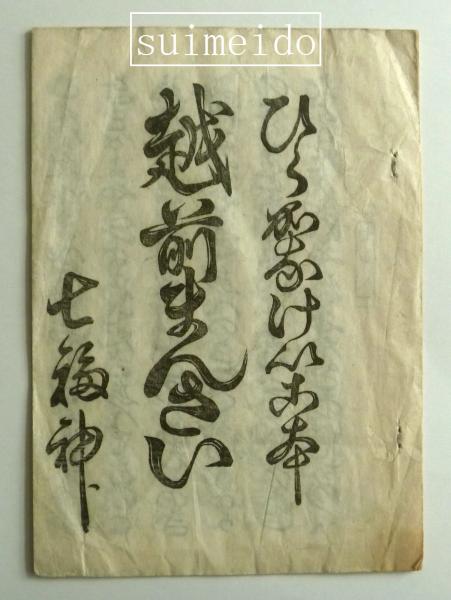 suimeido
ひらがなけいこ本
越前まんさい
七福神